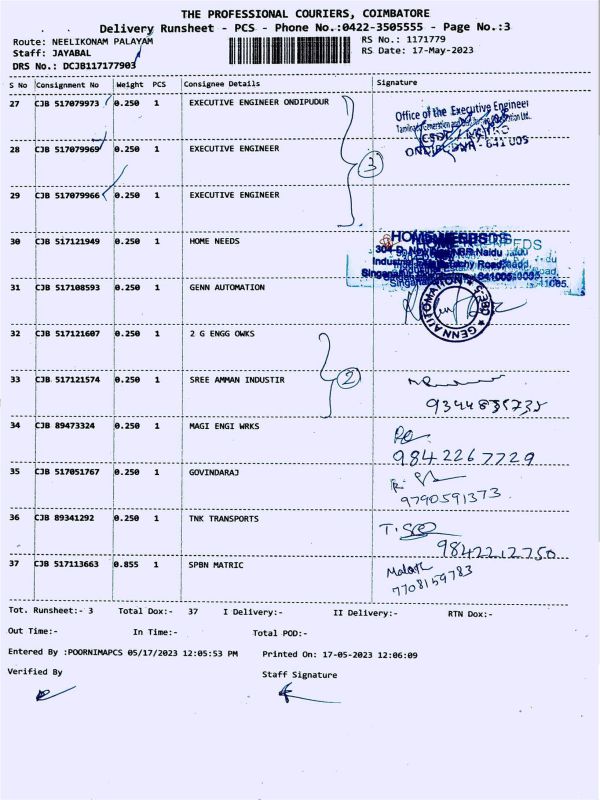 THE PROFESSIONAL COURIERS, COIMBATORE
Delivery Runsheet - PCS - Phone No.:0422-3505555 - Page No.:3
Route: NEELIKONAM PALAYAM RS No.: 1171779
Staff: JAYABAL RS Date: 17-May-2023
DRS No.: DCJB117177903
S No Consignment No Weight PCS Consignee Details Signature
27 CJB 517079973 0.250 1 EXECUTIVE ENGINEER ONDIPUDUR
Office of the Executive Engineer
28 CJB 517079969 0.250 1 EXECUTIVE ENGINEER
641 005
3
29 CJB 517079966 0.250 1 EXECUTIVE ENGINEER
30 CJB 517121949 0.250 1 HOME NEEDS
HOME NEEDS
31 CJB 517108593 0.250 1 GENN AUTOMATION
GENN AUTOMATION
32 CJB 517121607 0.250 1 2 G ENGG OWKS
2
33 CJB 517121574 0.250 1 SREE AMMAN INDUSTIR
34 CJB 89473324 0.250 1 MAGI ENGI WRKS
9842267729
35 CJB 517051767 0.250 1 GOVINDARAJ
9790591373
36 CJB 89341292 0.250 1 TNK TRANSPORTS
9842212750
37 CJB 517113663 0.855 1 SPBN MATRIC
7708159783
Tot. Runsheet:- 3 Total Dox:- 37 I Delivery:- II Delivery:- RTN Dox:-
Out Time:- In Time:- Total POD:-
Entered By :POORNIMAPCS 05/17/2023 12:05:53 PM Printed On: 17-05-2023 12:06:09
Verified By Staff Signature